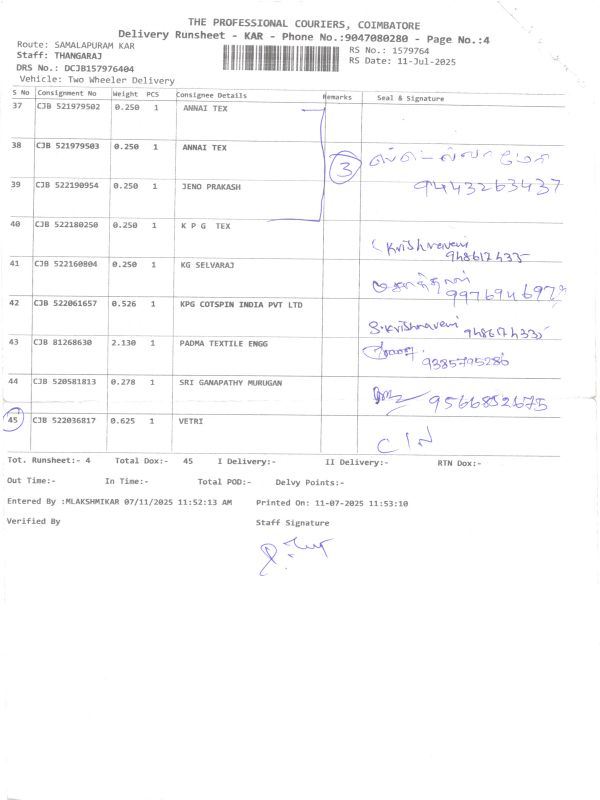 THE PROFESSIONAL COURIERS, COIMBATORE
Delivery Runsheet - KAR - Phone No.:9047080280 - Page No.:4
Route: SAMALAPURAM KAR RS No.: 1579764
Staff: THANGARAJ RS Date: 11-Jul-2025
DRS No.: DCJB157976404
Vehicle: Two Wheeler Delivery
S No Consignment No Weight PCS Consignee Details Remarks Seal & Signature
37 CJB 521979502 0.250 1 ANNAI TEX
38 CJB 521979503 0.250 1 ANNAI TEX 3
39 CJB 522190954 0.250 1 JENO PRAKASH 9443263437
40 CJB 522180250 0.250 1 K P G TEX Krishnaveni
41 CJB 522160804 0.250 1 KG SELVARAJ
42 CJB 522061657 0.526 1 KPG COTSPIN INDIA PVT LTD S.Krishnaveni
43 CJB 81268630 2.130 1 PADMA TEXTILE ENGG 9385795286
44 CJB 520581813 0.278 1 SRI GANAPATHY MURUGAN 9566852675
45 CJB 522036817 0.625 1 VETRI
Tot. Runsheet:- 4 Total Dox:- 45 I Delivery:- II Delivery:- RTN Dox:-
Out Time:- In Time:- Total POD:- Delvy Points:-
Entered By :MLAKSHMIKAR 07/11/2025 11:52:13 AM Printed On: 11-07-2025 11:53:10
Verified By Staff Signature